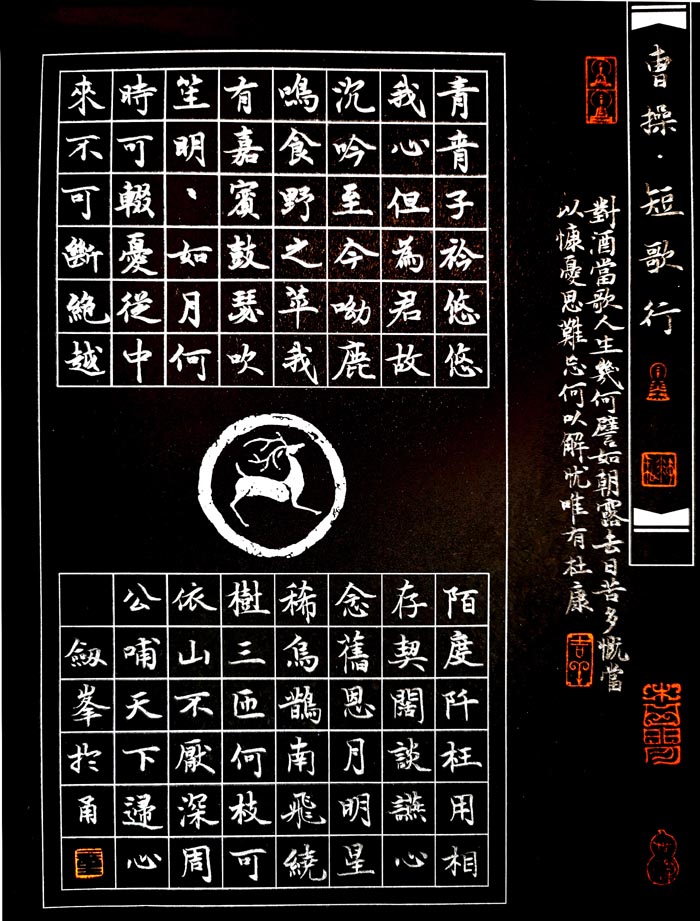 曹操·短歌行
對酒當歌人生幾何譬如朝露去日苦多慨當
以慷憂思難忘何以解忧唯有杜康
青青子衿悠悠
我心但為君故
沉吟至今呦鹿
鳴食野之苹我
有嘉賓鼓瑟吹
笙明、如月何
時可輟憂從中
來不可斷絕越
陌度阡枉用相
存契闊談讌心
念舊恩月明星
稀烏鵲南飛繞
樹三匝何枝可
依山不厭深周
公哺天下歸心
劔峯於甬